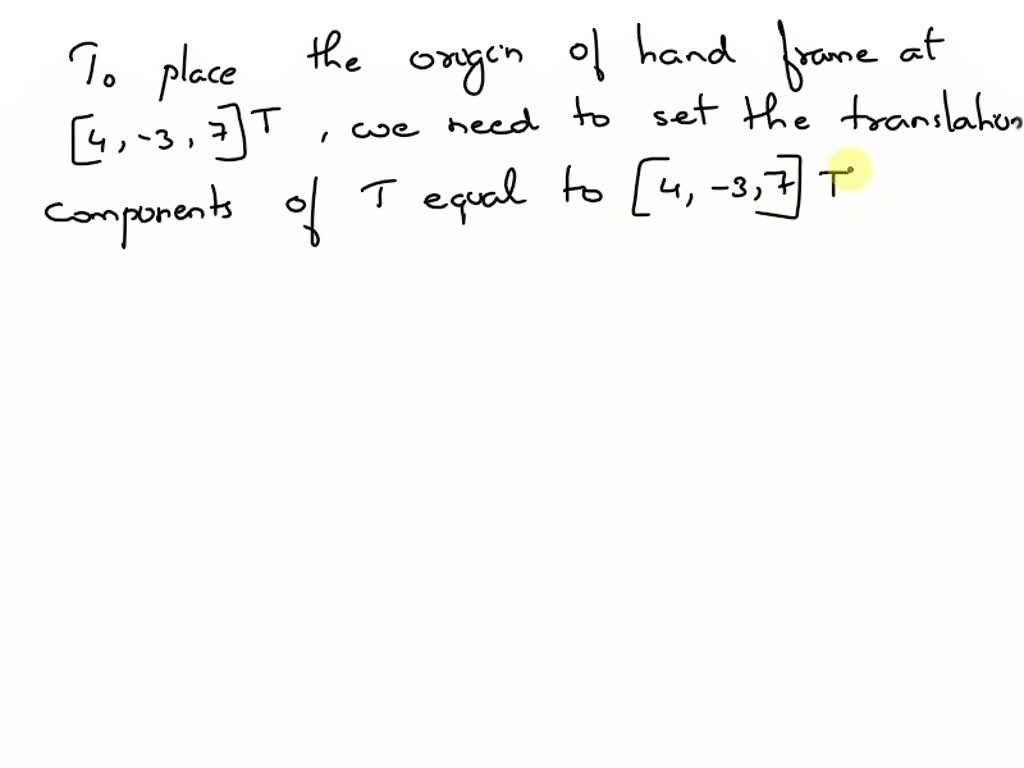 To place the origin of hand frame at
[4, -3, 7]T, we need to set the translation
components of T equal to [4, -3, 7] T